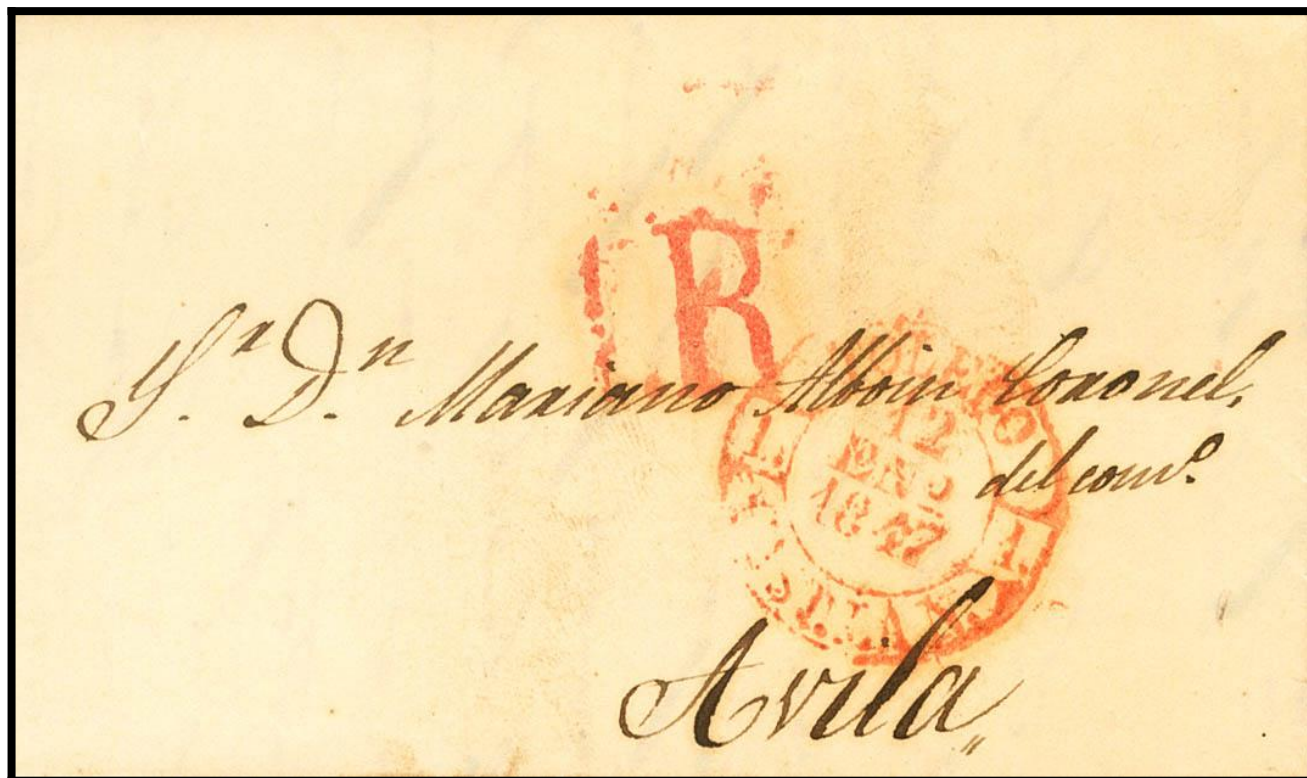 R
S.ʳ D.ⁿ Mariano Alboin Coronel,
del com.º
12
1847
1.
1.
Avila,,